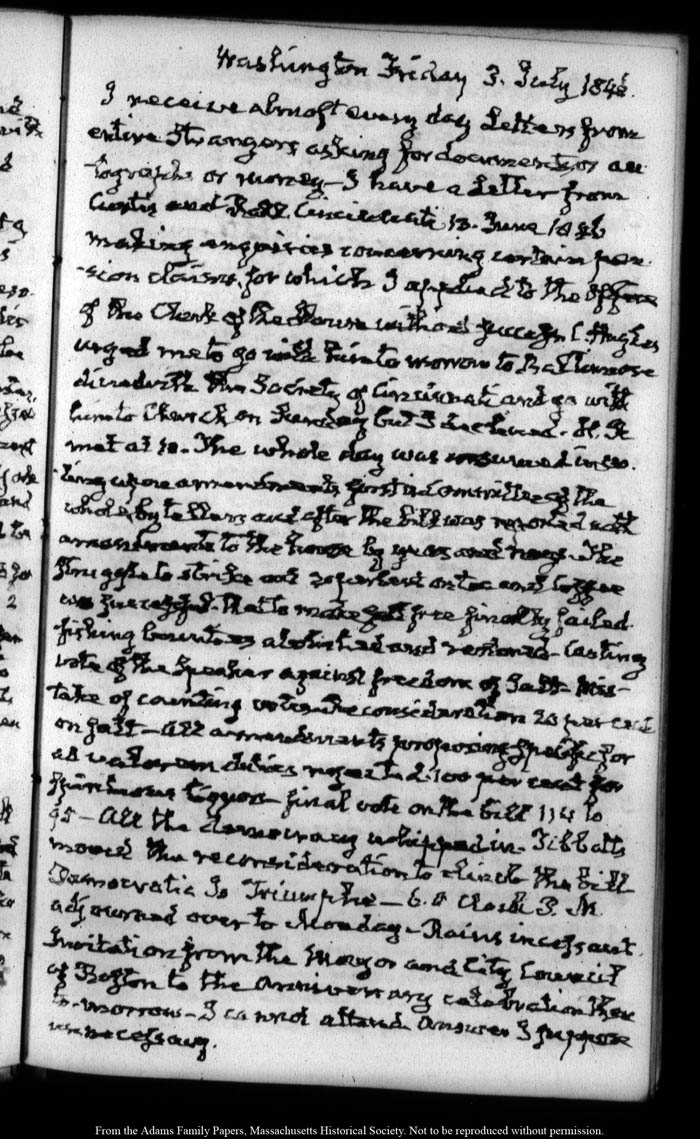 Washington Friday 3. July 1846.
I receive almost every day Letters from
entire Strangers asking for documents, or au-
tographs or money – I have a Letter from
Curtis and Cincinnati 12. June 1846
making enquiries concerning certain pen-
sion claims, for which I applied to the Office
of the Clerk of the House without success. C. Hughes
urged me to go with him to morrow to Baltimore
dine with the Society of Cincinnati and go with
him to Church on Sunday but I declined. H. R.
met at 10. The whole day was consumed in vo-
ting upon amendments first in Committee of the
whole by tellers and after the bill was reported with
amendments to the house by yeas and nays. The
struggle to strike out 20 per cent on tea and coffee
succeeded. That to make salt free finally failed.
fishing bounties abolished and restored – Casting
vote of the Speaker against freedom of Salt. Mis-
take of counting votes. Reconsideration 20 per cent
on Salt – All amendments proposing specific for
ad valorem duties rejected. 100 per cent for
Spirituous liquors – final vote on the bill 114 to
95 – All the democracy whipped in. Tibbatts
moved the reconsideration to clinch the bill
Democratia Io Triumphe – 6. O Clock P. M.
adjourned over to Monday – Rains incessant.
Invitation from the Mayor and City Council
of Boston to the Anniversary celebration there
to-morrow – I cannot attend. Answer I suppose
unnecessary.
From the Adams Family Papers, Massachusetts Historical Society. Not to be reproduced without permission.